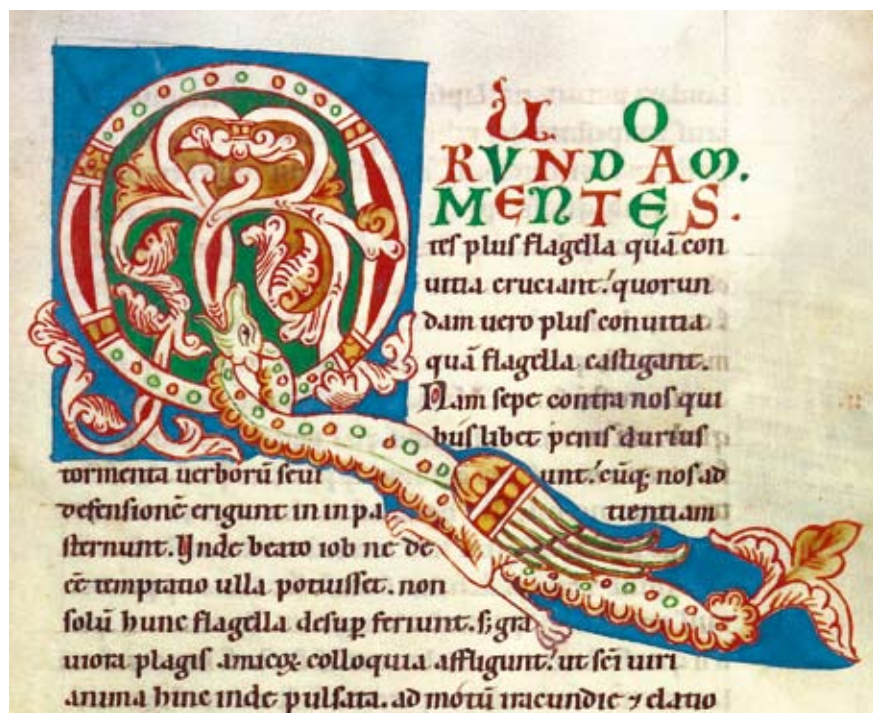 QUO
RVNDAM.
MENTES.
teſ pluſ flagella quā con
uitia cruciant: quorun
dam uero pluſ conuitia
quā flagella caſtigant.
Nam ſepe contra noſ qui
buſ libet peniſ duriuſ
tormenta uerborū ſeuiunt: cūq; noſ ad
defenſionē erigunt in inpatientiam
ſternunt. Vnde beato iob ne de
eē temptatio ulla potuiſſet. non
ſolū hunc flagella deſuꝑ feriunt. ſ; gra
uiora plagiſ amicoꝝ colloquia affligunt: ut ſc̄i uiri
anima hinc inde pulſata. ad motū iracundie ⁊ elatio